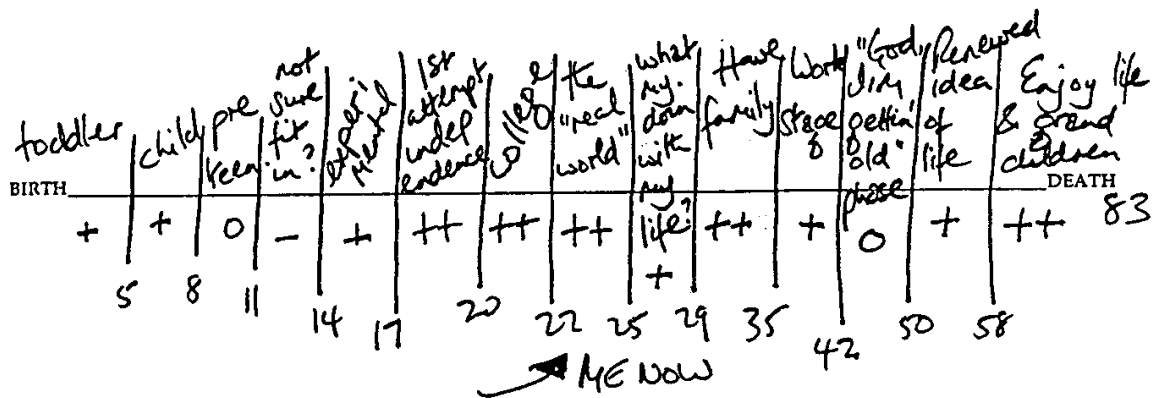 toddler
child
pre
teen
not
sure
fit
in?
experi
mental
1st
attempt
indep
endence
college
the
"real
world"
what
my
down
with
my
life?
Have
family
Work
stage
"God,
I'm
gettin'
old"
phase
Renewed
idea
of
life
Enjoy life
& grand
children
BIRTH
DEATH
83
+ + 0 - + ++ ++ ++ + ++ + 0 + ++
5 8 11 14 17 20 22 25 29 35 42 50 58
ME NOW